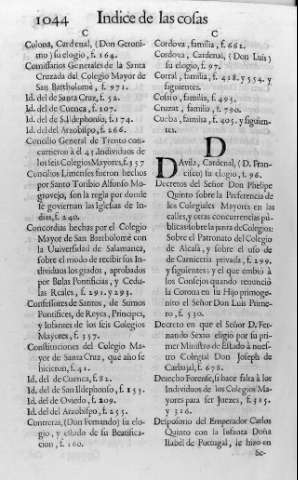 1044 Indice de las cosas
C
Colona, Cardenal, (Don Geroni-
mo) su elogio, f. 164.
Comissarios Generales de la Santa
Cruzada del Colegio Mayor de
San Bartholomè, f. 971.
Id. del de Santa Cruz, f. 52.
Id. del de Cuenca, f. 107.
Id. del de S. Ildephonso, f. 174.
Id. del del Arzobispo, f. 266.
Concilio General de Trento con-
currieron à èl 41 Individuos de
los seis Colegios Mayores, f. 357
Concilios Limenses fueron hechos
por Santo Toribio Alfonso Mo-
grovejo, son la regla por donde
se goviernan las Iglesias de In-
dias, f. 240.
Concordias hechas por el Colegio
Mayor de San Bartholomè con
la Universidad de Salamanca,
sobre el modo de recibir sus In-
dividuos los grados, aprobados
por Bulas Pontificias, y Cedu-
las Reales, f. 291. y 293.
Confessores de Santos, de Sumos
Pontifices, de Reyes, Principes,
y Infantes de los seis Colegios
Mayores, f. 357.
Constituciones del Colegio Ma-
yor de Santa Cruz, què año se
hicieron, f. 41.
Id. del de Cuenca, f. 82.
Id. del de San Ildephonso, f. 153.
Id. del de Oviedo, f. 209.
Id. del del Arzobispo, f. 255.
Contreras, (Don Fernando) su elo-
gio, y estado de su Beatifica-
cion, f. 160.
C
Cordova, familia, f. 662.
Cordova, Cardenal, (Don Luis)
su elogio, f. 97.
Corral, familia, f. 428. y 554. y
siguientes.
Cossio, familia, f. 495.
Cruzat, familia, f. 790.
Cueba, familia, f. 405. y siguien-
tes.
D
DAvila, Cardenal, (D. Fran-
cisco) su elogio, f. 96.
Decretos del Señor Don Phelipe
Quinto sobre la Preferencia de
los Colegiales Mayores en las
calles, y otras concurrencias pù-
blicas: sobre la junta de Colegios:
Sobre el Patronato del Colegio
de Alcalà, y sobre el uso de
la Carniceria privada, f. 299.
y siguientes: y el que embiò à
los Consejos quando renunciò
la Corona en su Hijo primoge-
nito el Señor Don Luis Prime-
ro, f. 530.
Decreto en que el Señor D. Fer-
nando Sexto eligiò por su pri-
mer Ministro de Estado à nues-
tro Colegial Don Joseph de
Carbajal, f. 678.
Derecho Forense, si hace falta à los
Individuos de los Colegios Ma-
yores para ser Juezes, f. 325.
y 326.
Desposorio del Emperador Carlos
Quinto con la Infanta Doña
Isabèl de Portugal, le hizo en